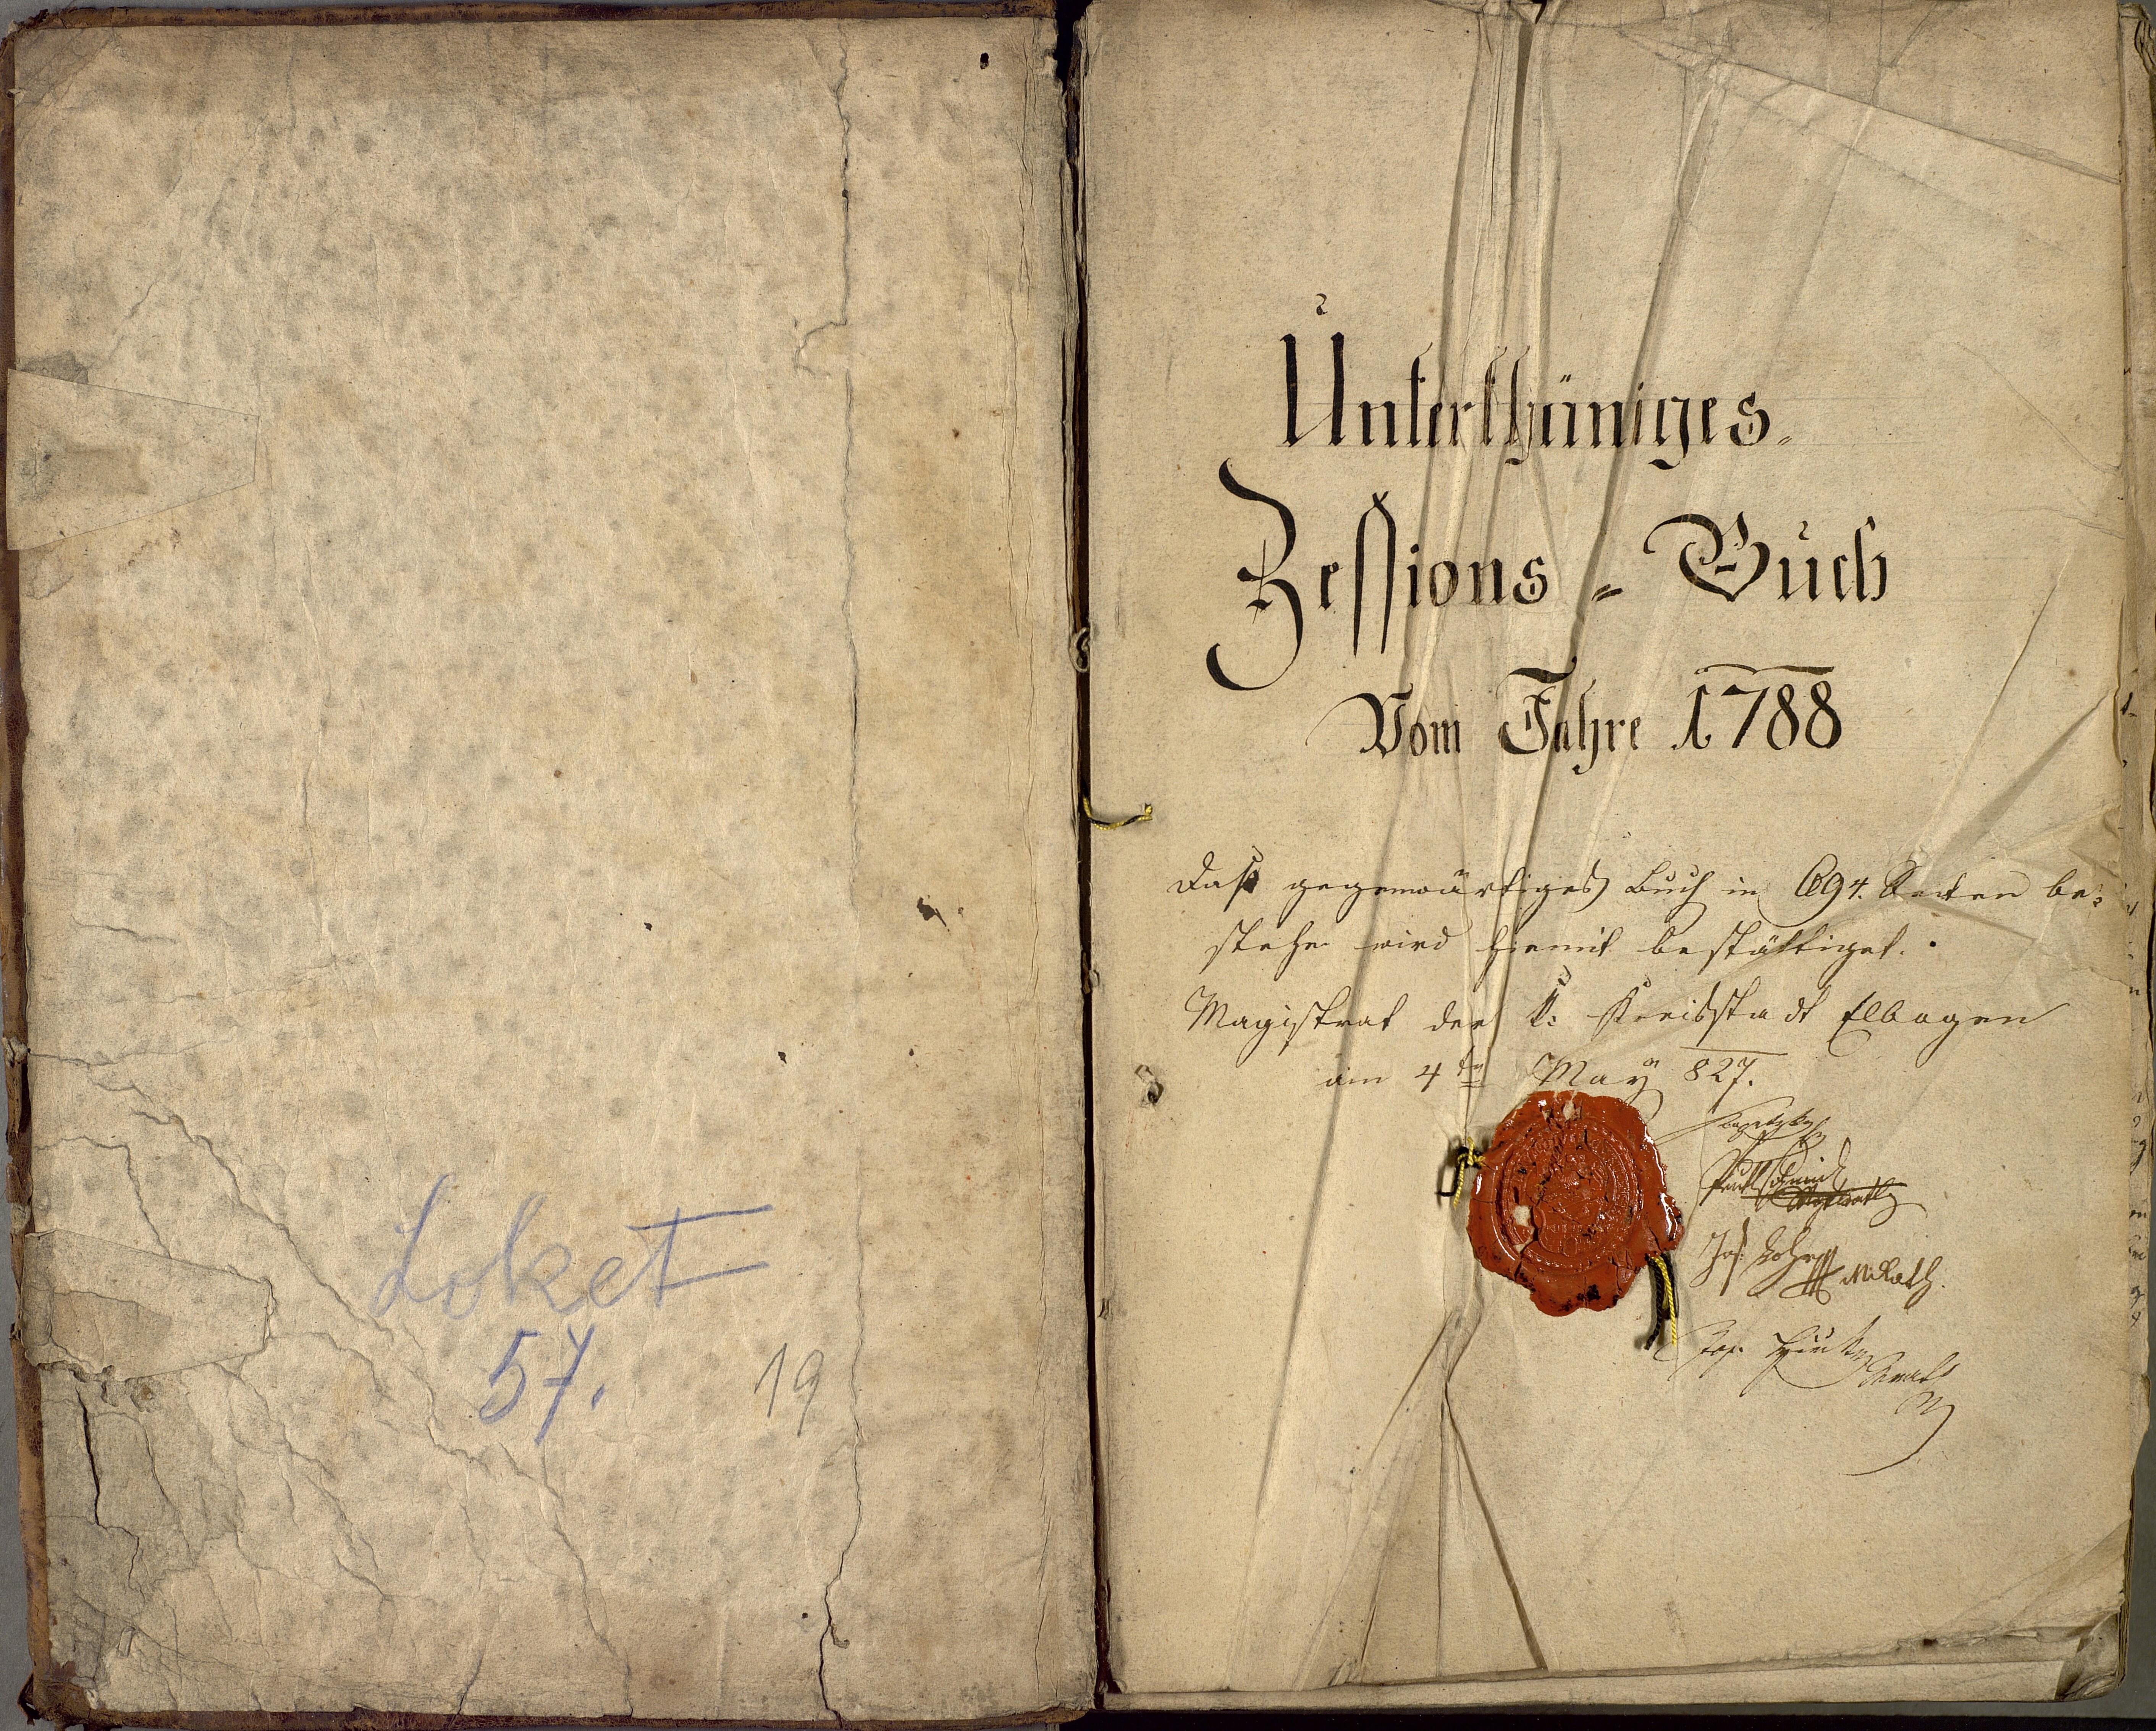 Loket
57.
19
Unterthäniges
Zessions = Buch
Vom Jahre 1788
Daß gegenwärtiges Buch in 694. Seiten be=
stehe wird hiemit bestättiget.
Magistrat der k: Kreisstadt Elbogen
am 4ten May 827.
Jos. MRath.
Jos.